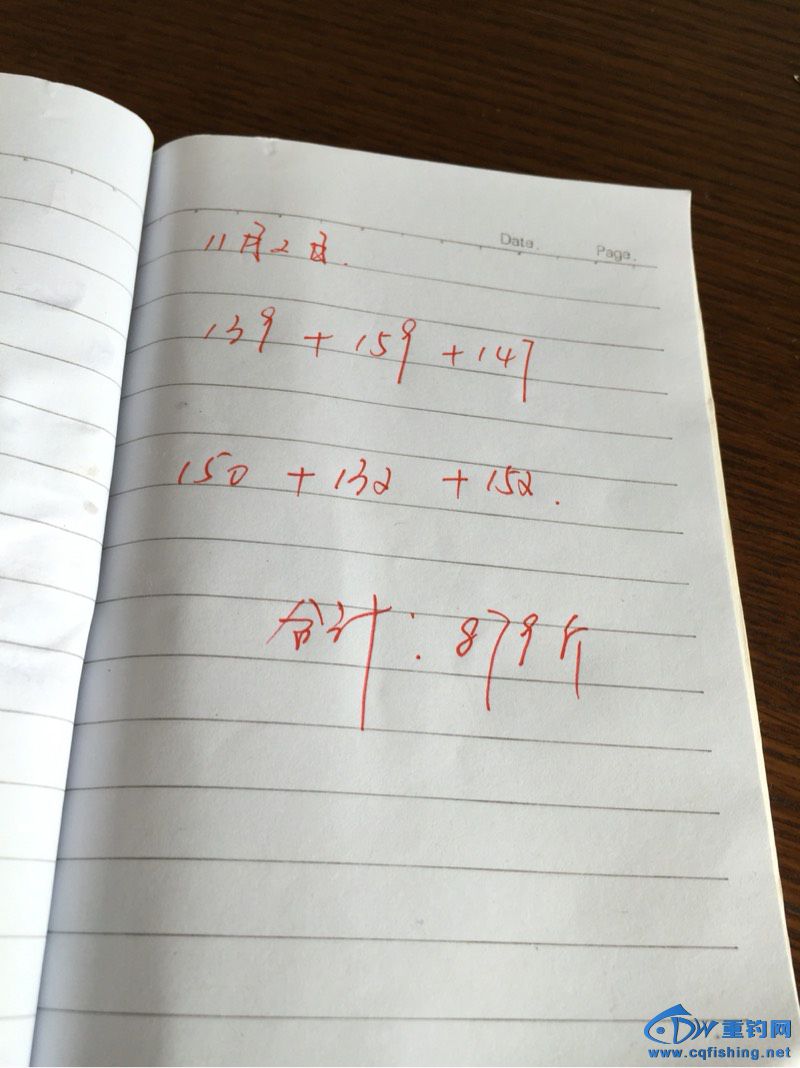 Date.
Page.
11月2日.
139+159+147
150+132+152.
合计:879斤
DW重钓网
www.cqfishing.net